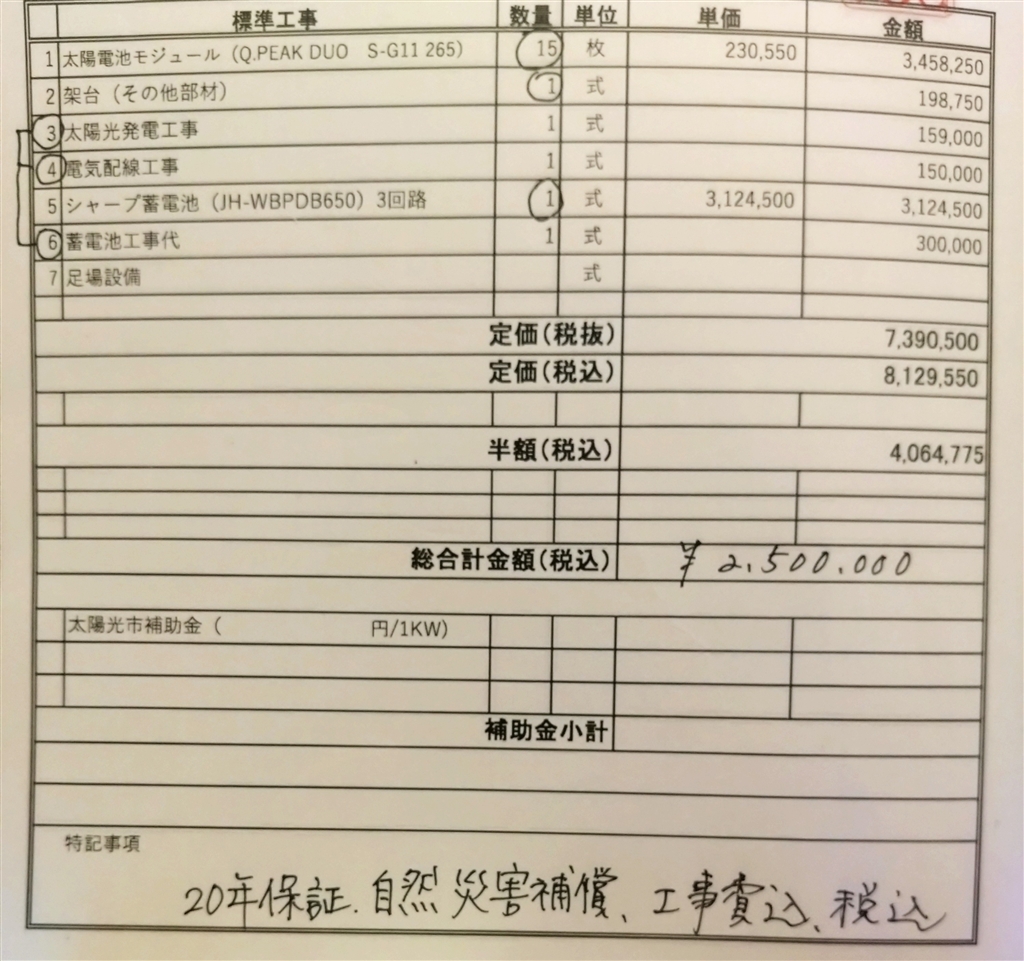 標準工事 数量 単位 単価 金額
1 太陽電池モジュール（Q.PEAK DUO S-G11 265） 15 枚 230,550 3,458,250
2 架台（その他部材） 1 式 198,750
3 太陽光発電工事 1 式 159,000
4 電気配線工事 1 式 150,000
5 シャープ蓄電池（JH-WBPDB650）3回路 1 式 3,124,500 3,124,500
6 蓄電池工事代 1 式 300,000
7 足場設備 式
定価(税抜) 7,390,500
定価(税込) 8,129,550
半額(税込) 4,064,775
総合計金額(税込) ¥ 2,500,000
太陽光市補助金（ 円/1KW）
補助金小計
特記事項
20年保証、自然災害補償、工事費込、税込